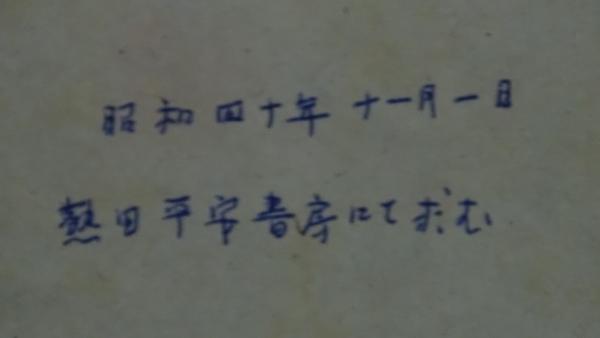 昭和四十年 十一月一日
熱田平安書房にて求む